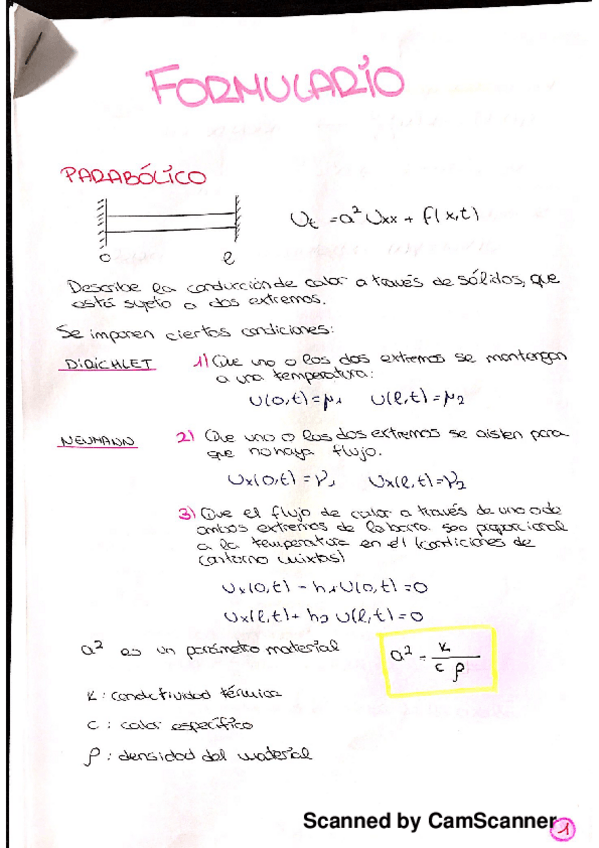 FORMULARIO
PARABÓLICO
Ut = a² Uxx + f(x,t)
0 l
Describe la conducción de calor a través de sólidos, que
está sujeto a dos extremos.
Se imponen ciertas condiciones:
DIRICHLET 1) Que uno o los dos extremos se mantengan
a una temperatura:
U(0,t) = μ1 U(l,t) = μ2
NEUMANN 2) Que uno o los dos extremos se aislen para
que no haya flujo.
Ux(0,t) = V1 Ux(l,t) = V2
3) Que el flujo de calor a través de uno o de
ambos extremos de la barra sea proporcional
a la temperatura en él (condiciones de
contorno mixtas)
Ux(0,t) - h1U(0,t) = 0
Ux(l,t) + h2 U(l,t) = 0
a² es un parámetro material
a² = K / c ρ
K: conductividad térmica
c: calor específico
ρ: densidad del material
Scanned by CamScanner
1